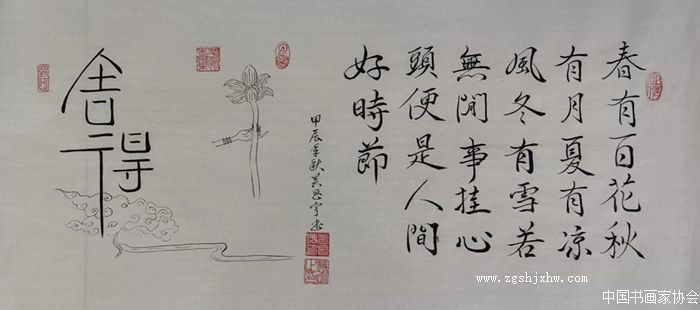 春有百花秋
有月夏有凉
風冬有雪若
無閒事挂心
頭便是人間
好時節
甲辰年秋吴思宁书
舍得
www.zgshjxhw.com
中国书画家协会